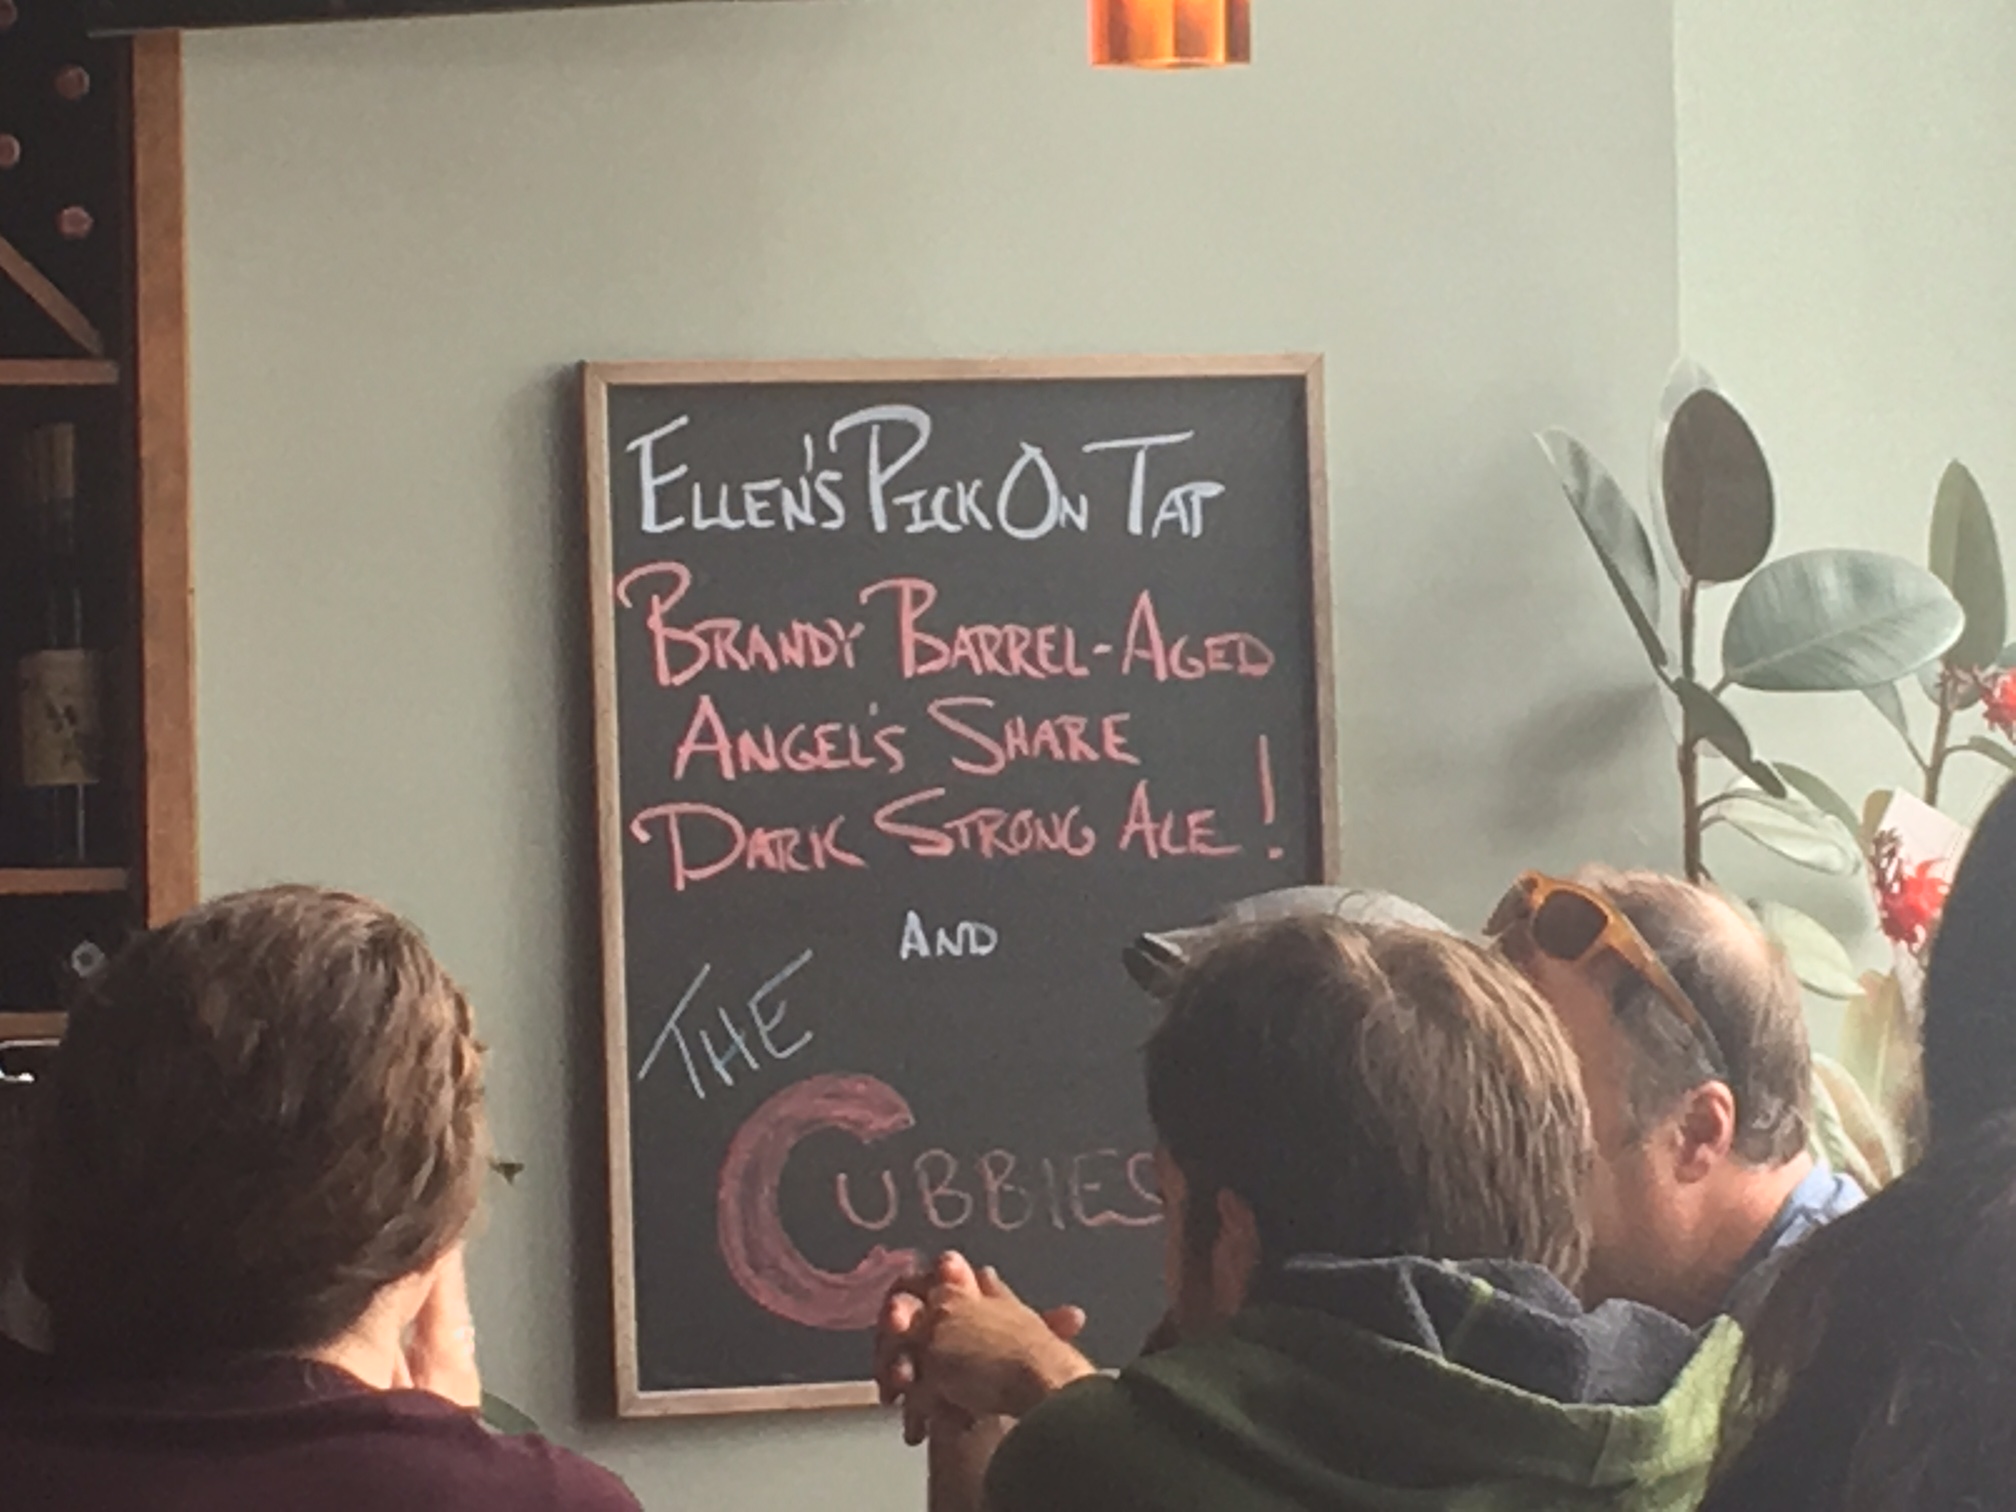 ELLEN'S PICK ON TAP
BRANDY BARREL-AGED
ANGEL'S SHARE
DARK STRONG ALE!
AND
THE
CUBBIES